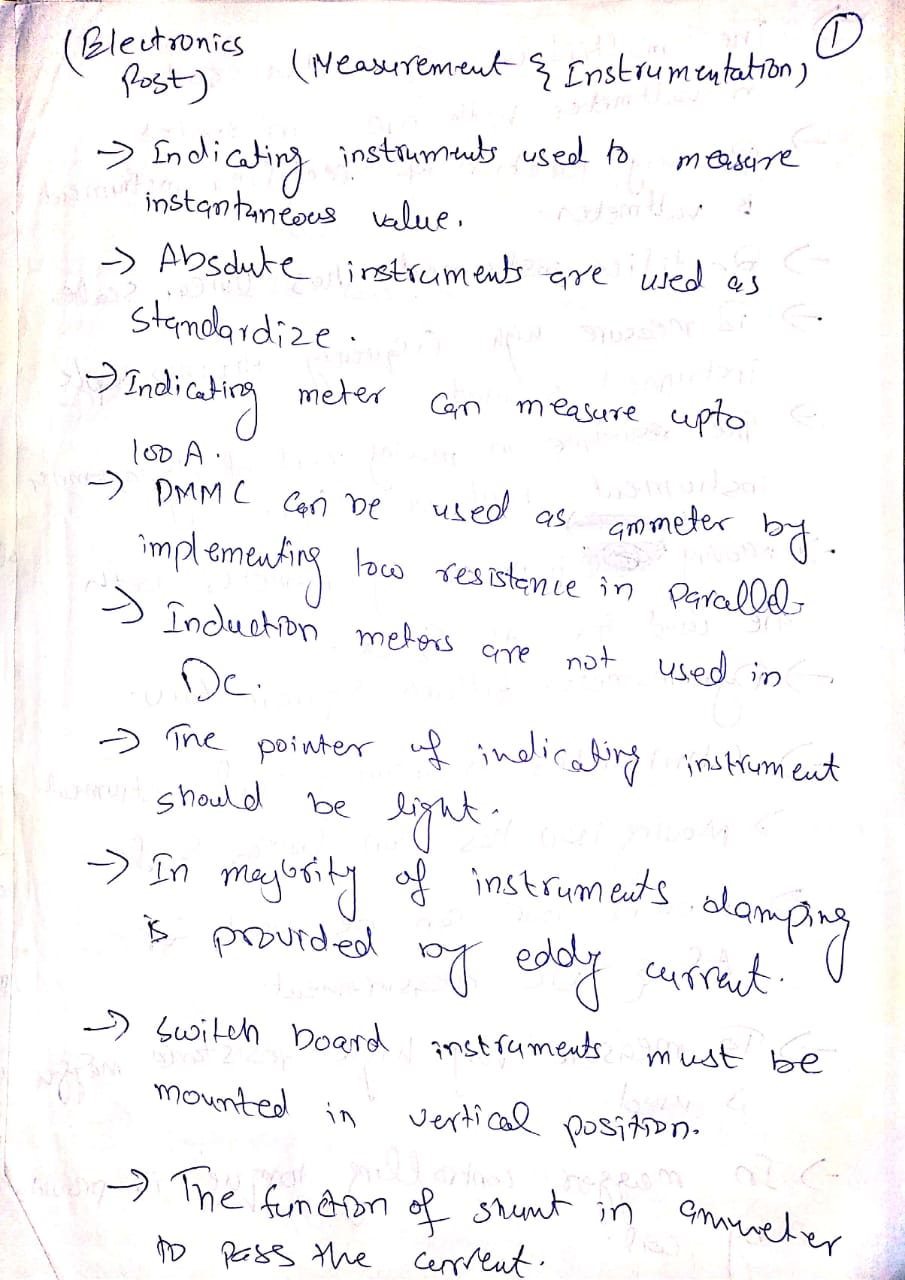 (Electronics Post) (Measurement & Instrumentation) 1
→ Indicating instruments used to measure
instantaneous value.
→ Absolute instruments are used as
standardize.
→ Indicating meter can measure upto
100 A.
→ PMMC can be used as ammeter by
implementing low resistance in parallel.
→ Induction meters are not used in
DC.
→ The pointer of indicating instrument
should be light.
→ In majority of instruments damping
is provided by eddy current.
→ Switch board instruments must be
mounted in vertical position.
→ The function of shunt in ammeter
to pass the current.